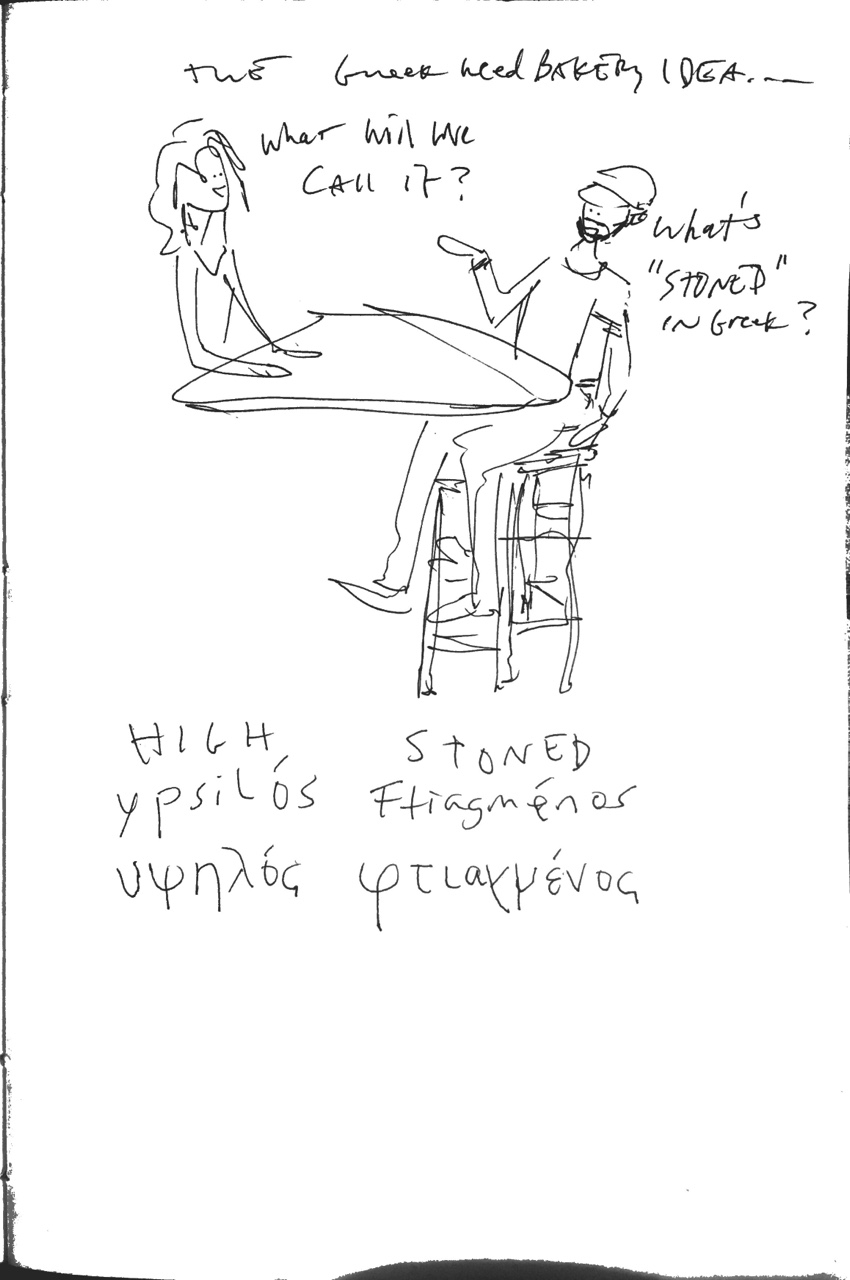 THE Greek weed BAKERY IDEA....
What will we
CALL IT?
What's
"STONED"
IN Greek?
HIGH STONED
ypsilós Ftiagménos
υψηλός φτιαγμένος